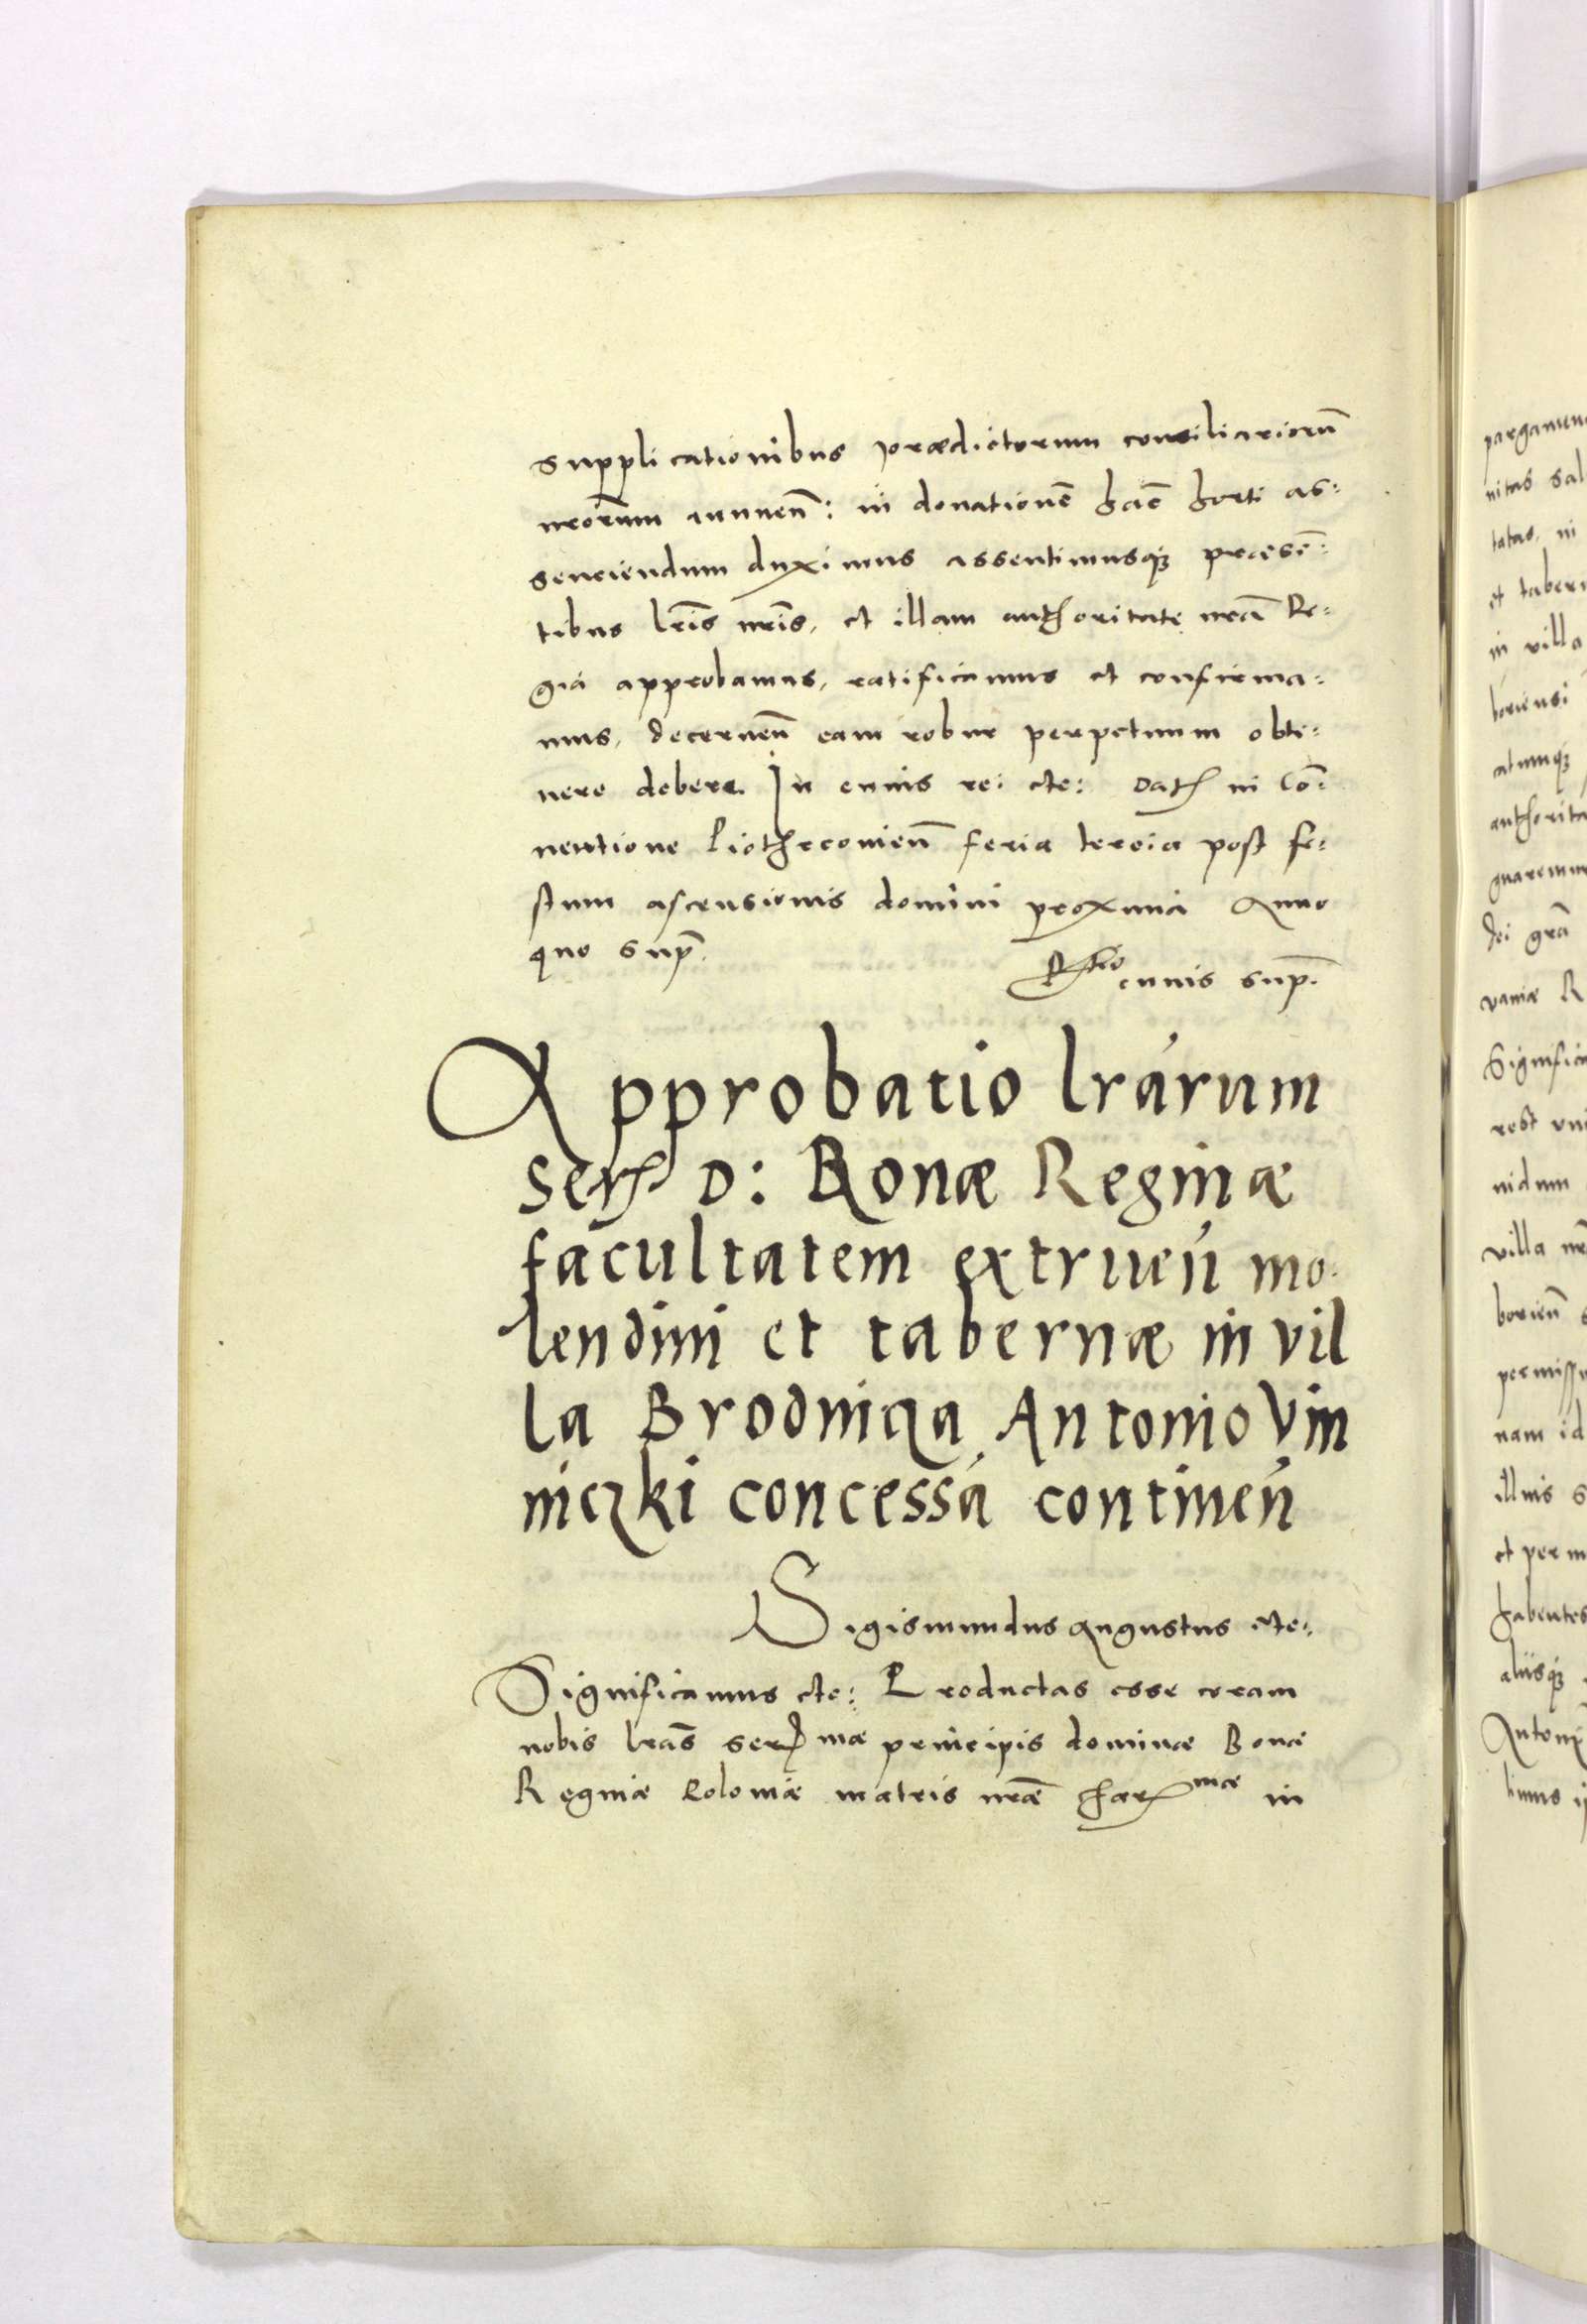 supplicationibus prædictorum consiliariorū
nrōrum annuen̄: in donationē hāc horti as:
senciendum duximus assentimusq3 præsē:
tibus lr̄is nr̄is, et illam authoritate nr̄a Re:
gia approbamus, ratificamus et confirma:
mus, decernen̄ eam robur perpetuum obti:
nere debere. In cuius rei etc: Dat in Cō:
uentione Piothrcouien̄ feria tercia post fe:
stum ascensionis domini proxima Anno
quo sup̄.
Rtio cuius sup̄.
Approbatio lrárum
Ser D: Bonæ Reginæ
facultatem extruen̄ mo:
lendini et tabernæ in vil
la Brodnicza Antonio Vin
niczki concessā continen̄
Sigismundus Augustus etc:
Significamus etc: Productas esse coram
nobis lrās sermæ principis dominæ Bonæ
Reginæ Poloniæ matris nrǣ charmæ in
pargamen
nitas sal
tatas, in
et taber
in villa
boriensi
catumq3
authorita
guaremu
dei grā
vaniæ R
Significa
rest vni
nidum
villa nr̄
borien̄ s
permissu
nam id
illius s
et per m
habentes
aliisq3
Antoni